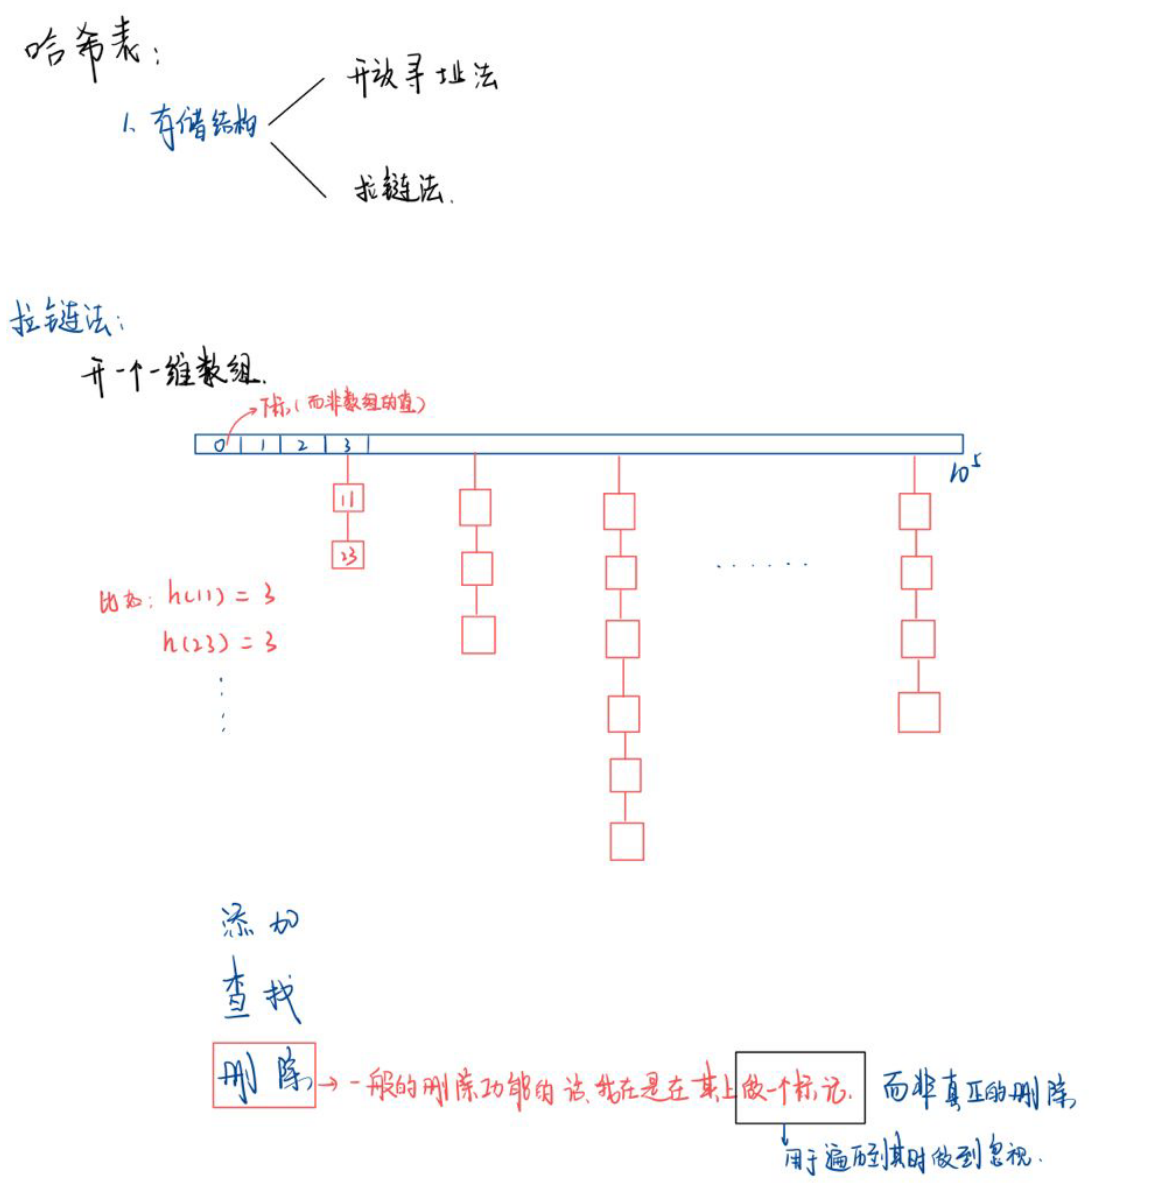 哈希表:
开放寻址法
1、存储结构
拉链法.
拉链法:
开一个一维数组.
下标(而非数组的值)
0 1 2 3
10^5
11
23
比如: h(11) = 3
h(23) = 3
添加
查找
删除 → 一般的删除功能的话,是在其上做一个标记. 而非真正的删除
用于遍历到其时做到忽视.